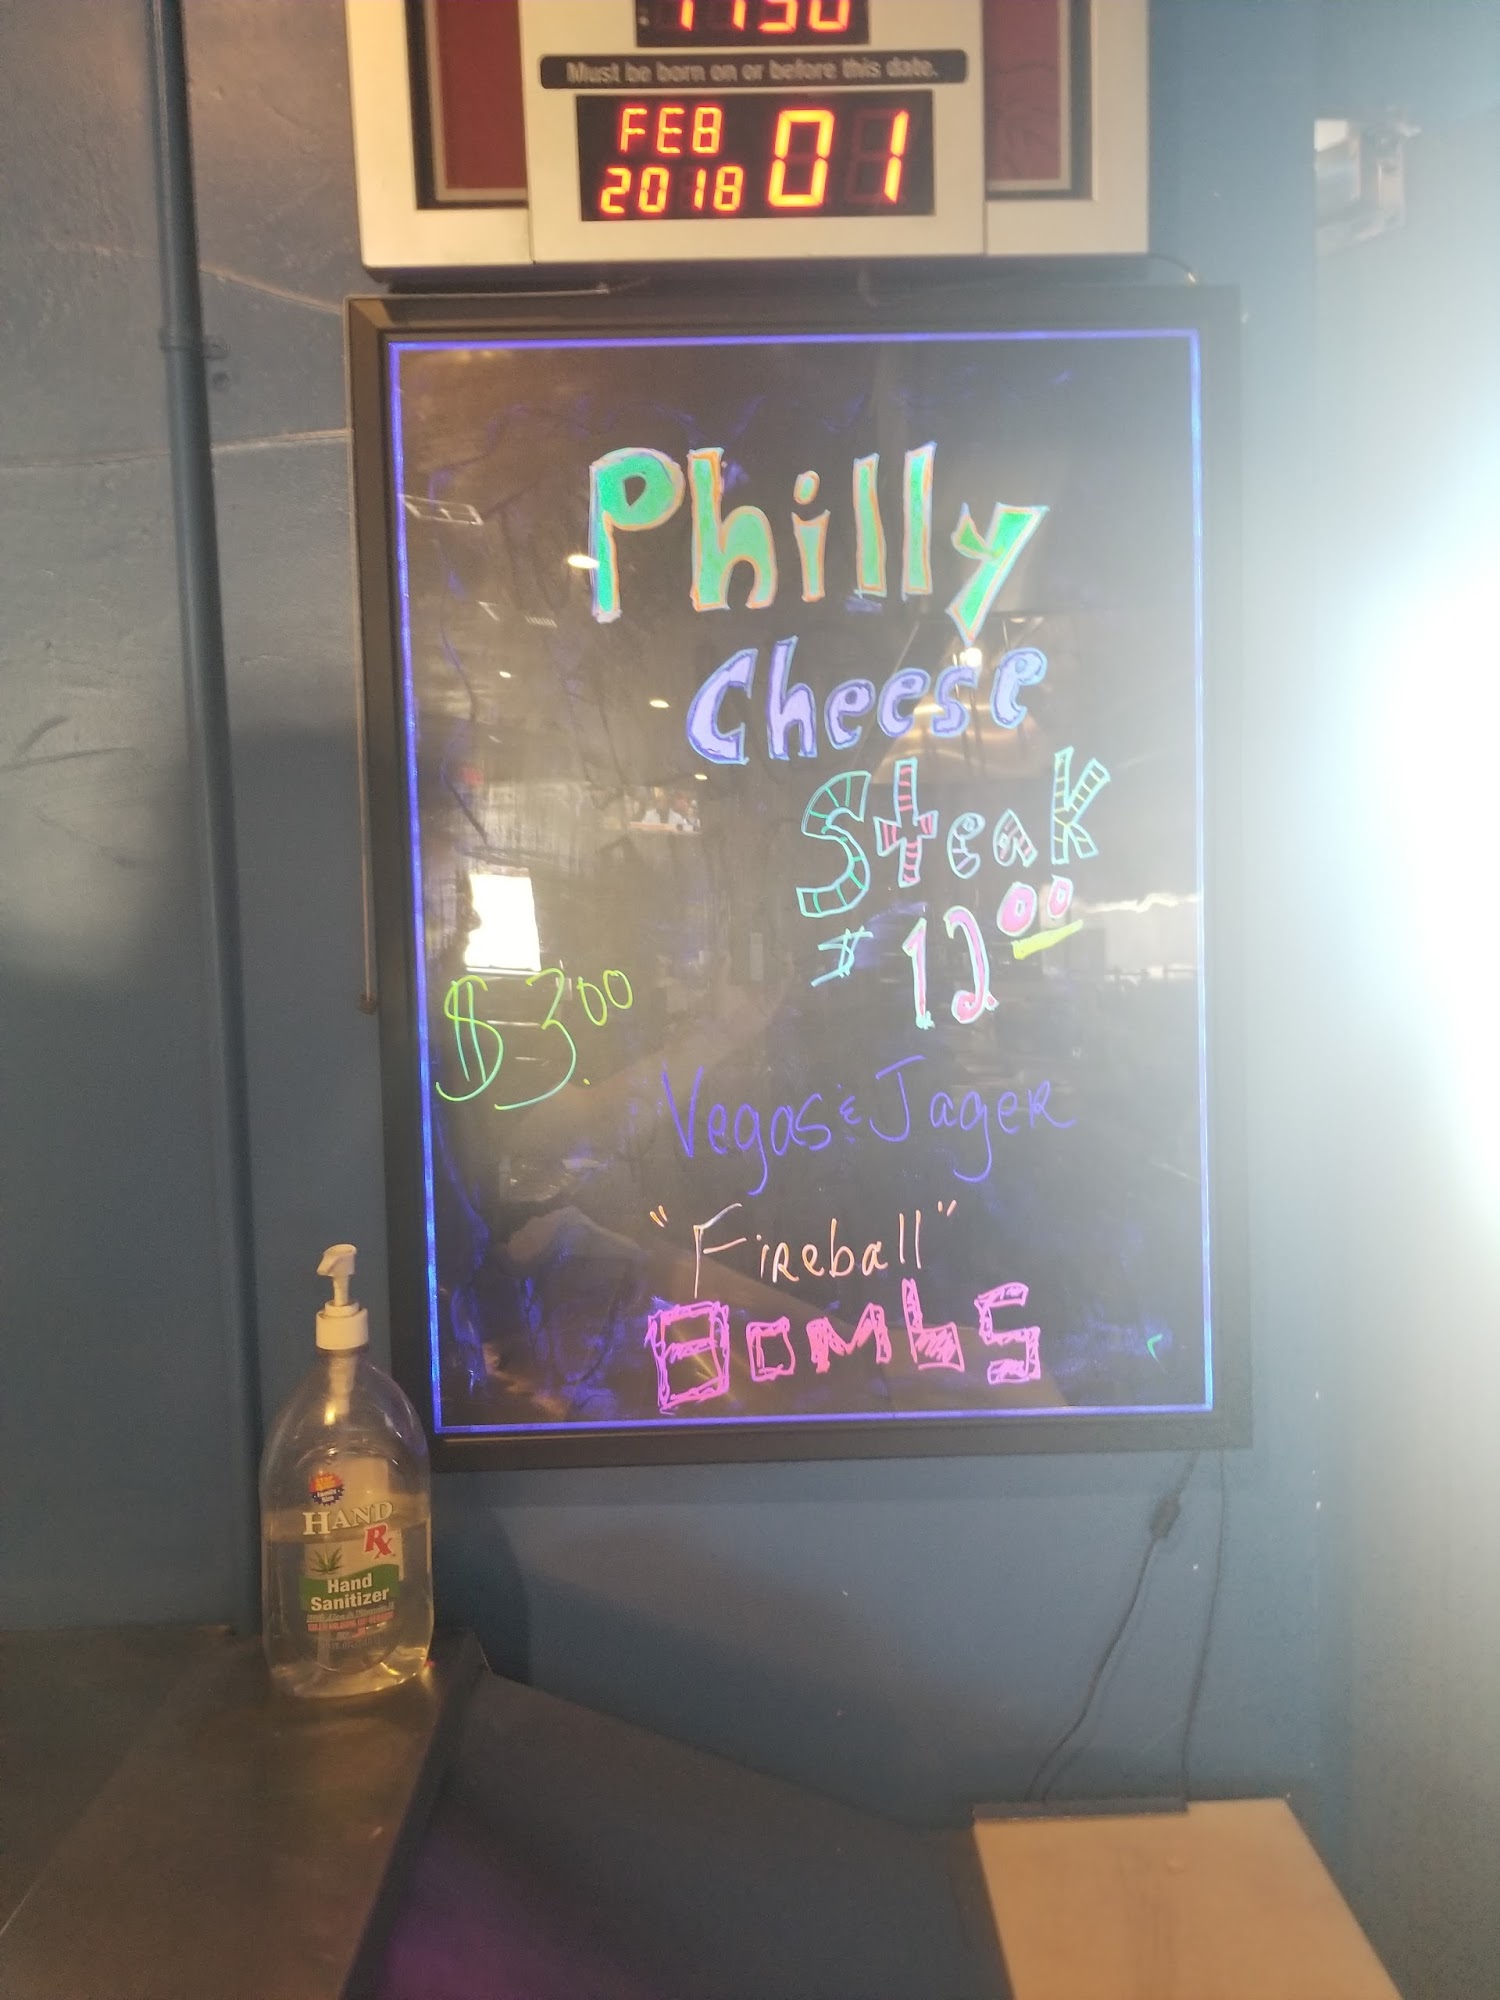 Must be born on or before this date.
FEB
2018 01
Philly
Cheese
Steak
$ 12.00
$3.00
Vegas & Jager
"Fireball"
Bombs
HAND
Rx
Hand
Sanitizer